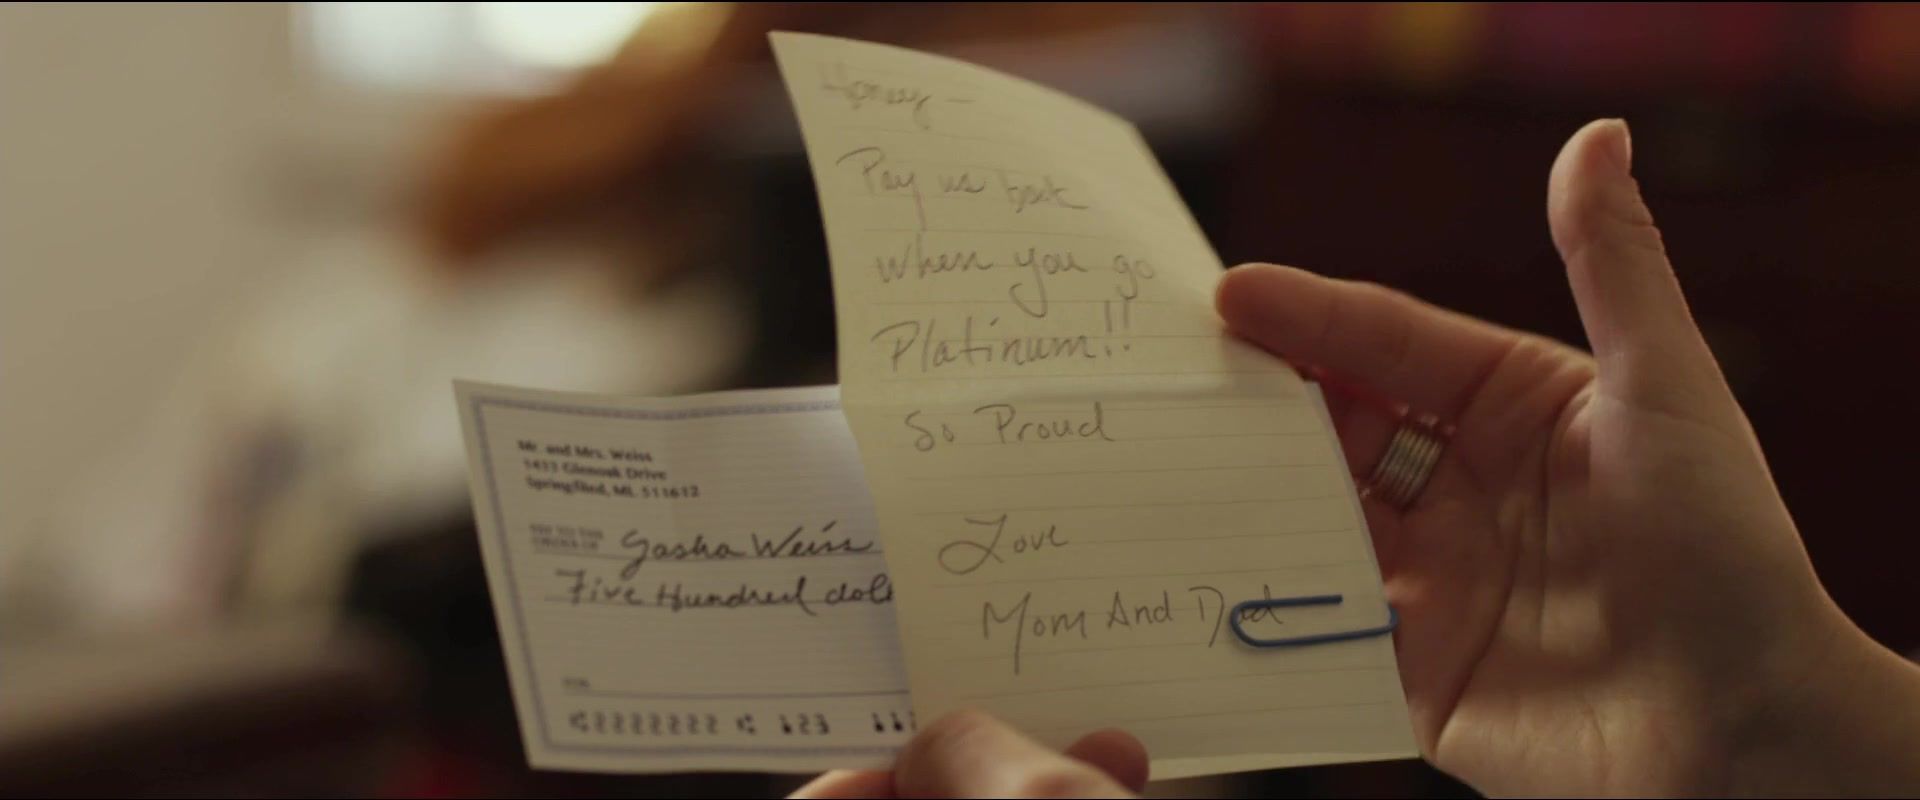 Honey —
Pay us back
when you go
Platinum!!
So Proud
Love
Mom And Dad
Mr. and Mrs. Weiss
5433 Glenoak Drive
Springfied, MI. 511612
PAY TO THE
ORDER OF
Sasha Weiss
Five Hundred doll